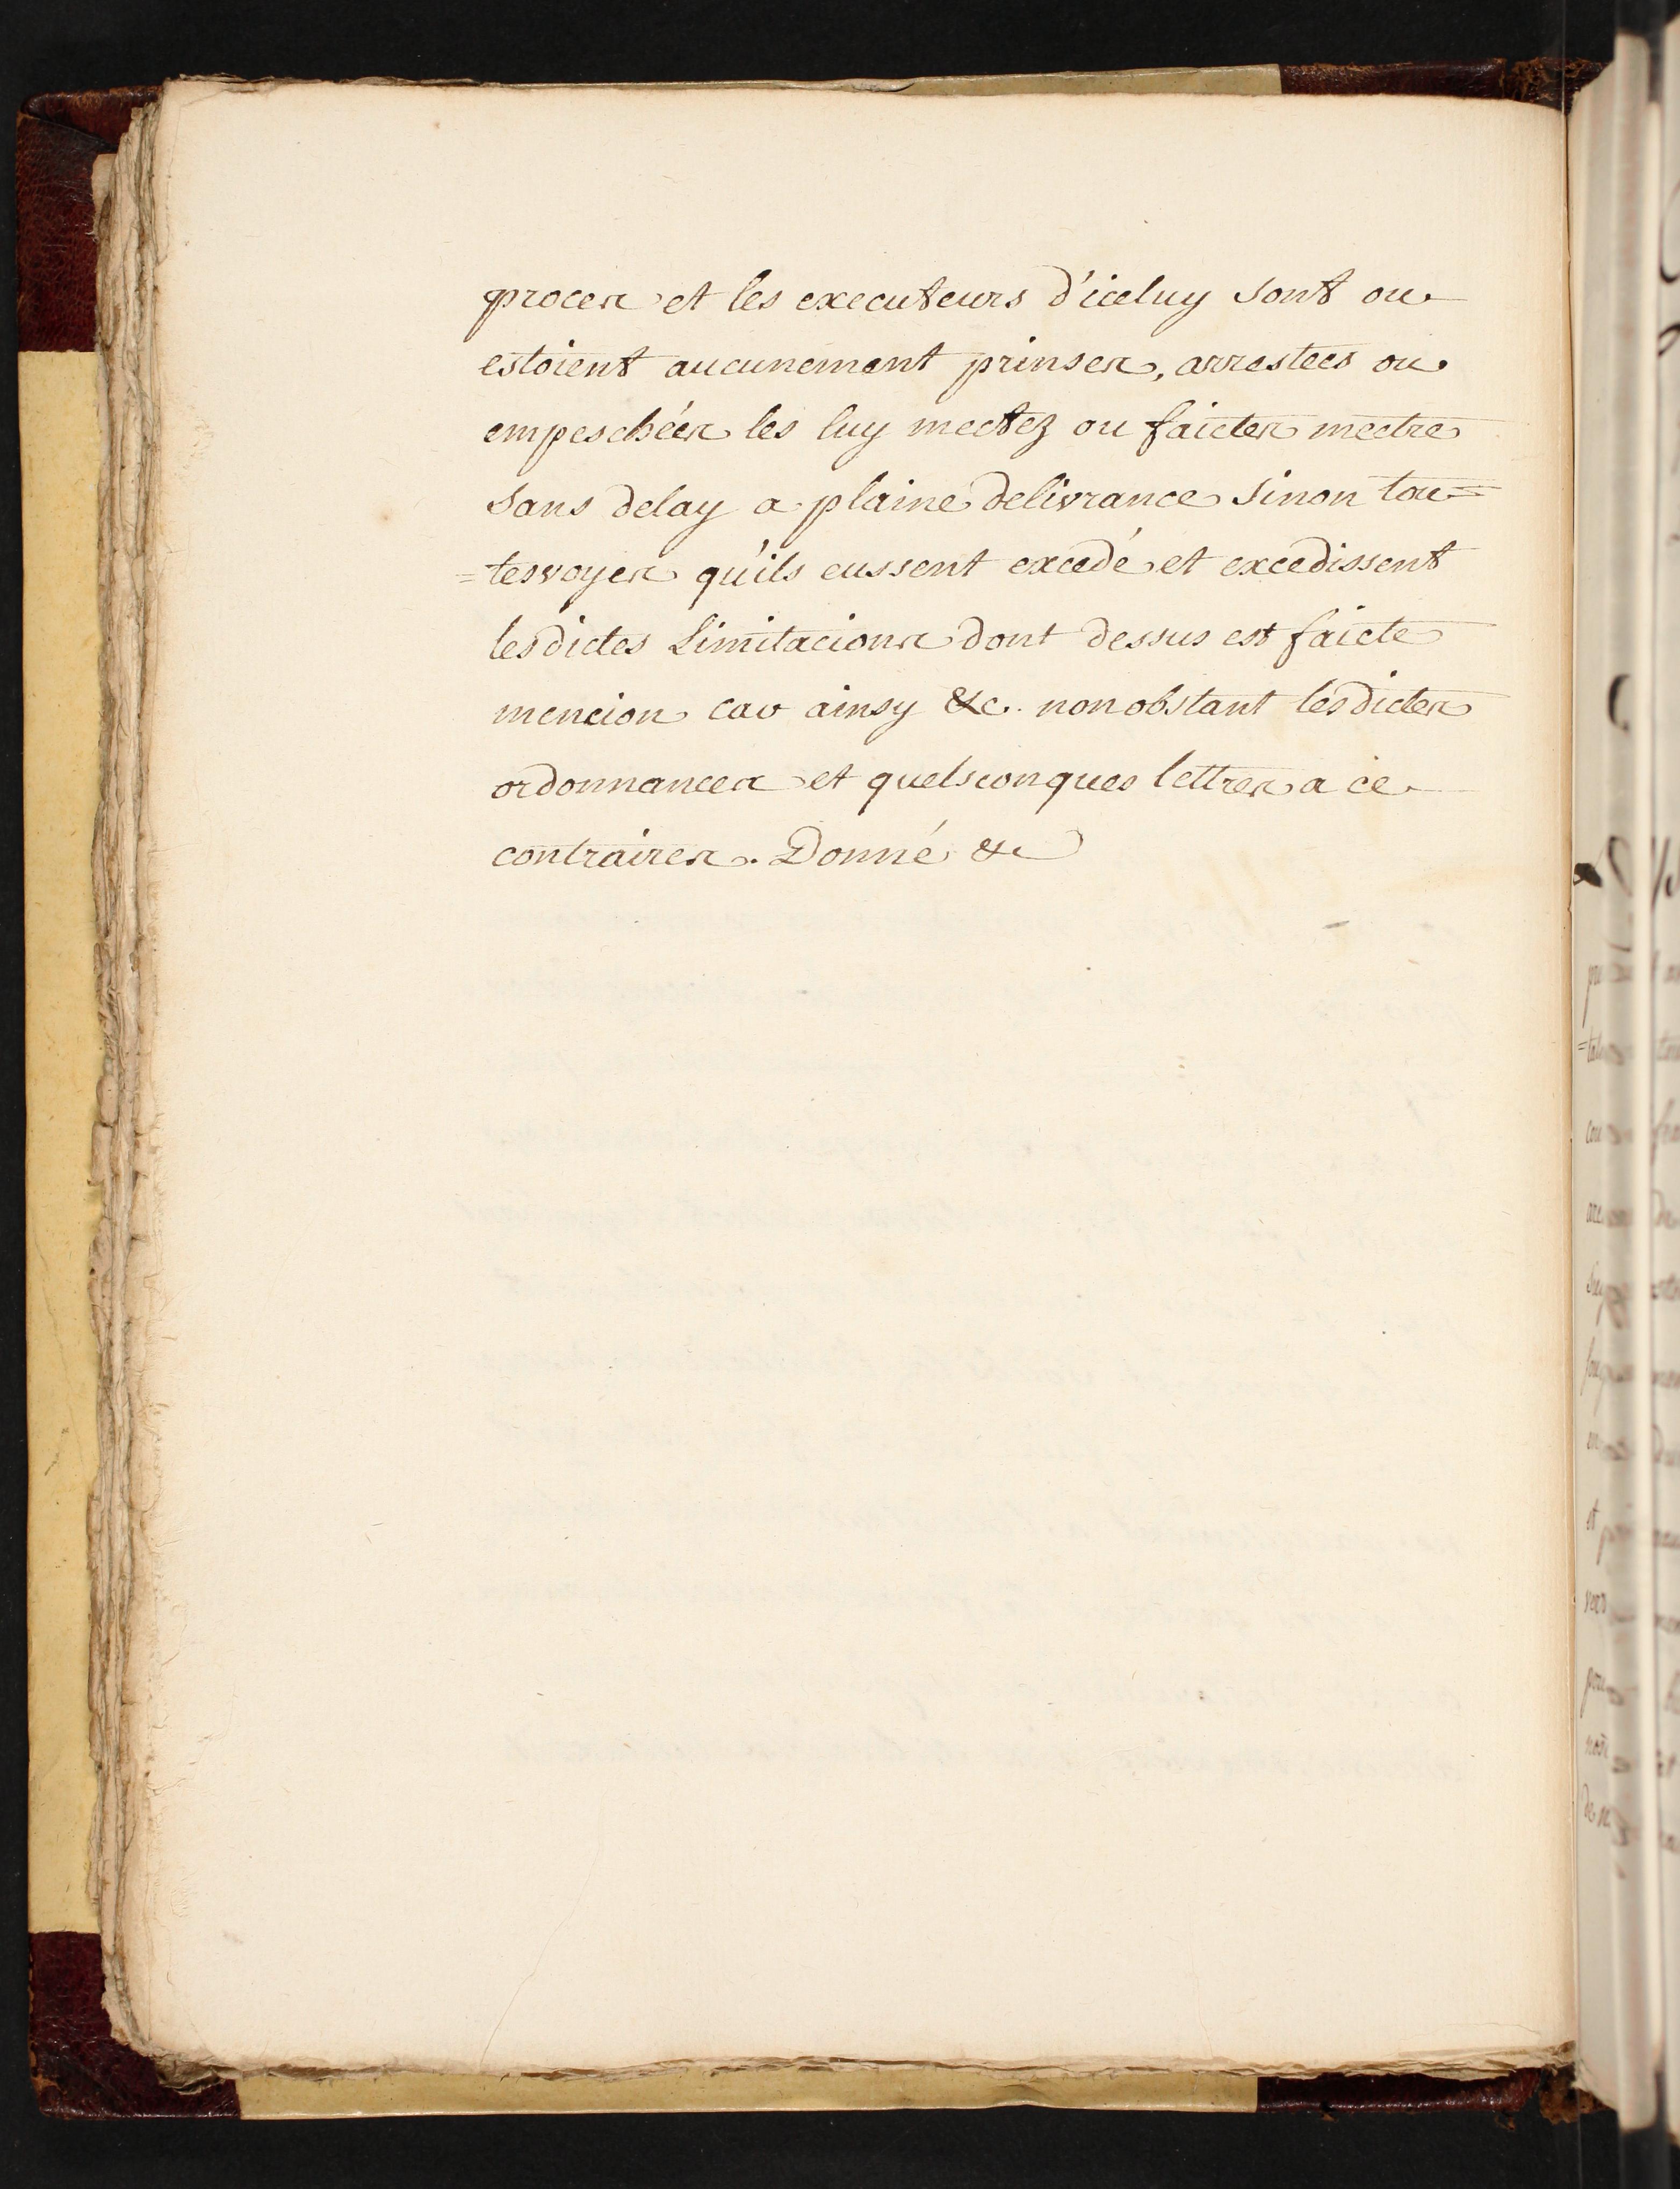 proces et les executeurs d'iceluy sont ou
estoient aucunement prinses, arrestees ou
empeschées les luy mectez ou faictes mectre
sans delay a plaine delivrance sinon tou=
=tesvoyes qu'ils eussent excedé et excedissent
lesdictes Limitacions dont dessus est faicte
mencion car ainsy &c. nonobstant lesdictes
ordonnances et quelsconques lettres a ce
contraires. Donné &c